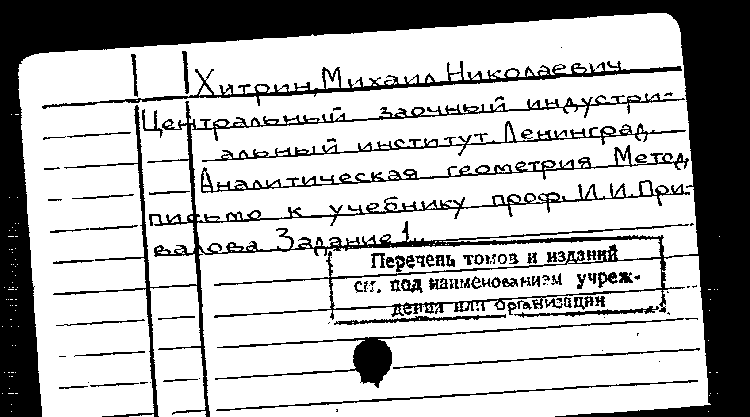 Хитрин, Михаил Николаевич
Центральный заочный индустри-
альный институт. Ленинград.
Аналитическая геометрия Метод.
письмо к учебнику проф. И.И. При-
валова Задание 1.
Перечень томов и изданий
см. под наименованием учреж-
дения или организации